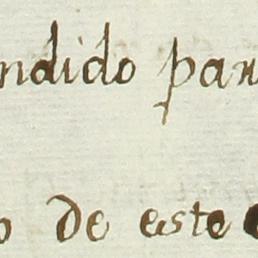 ndido par
o de este